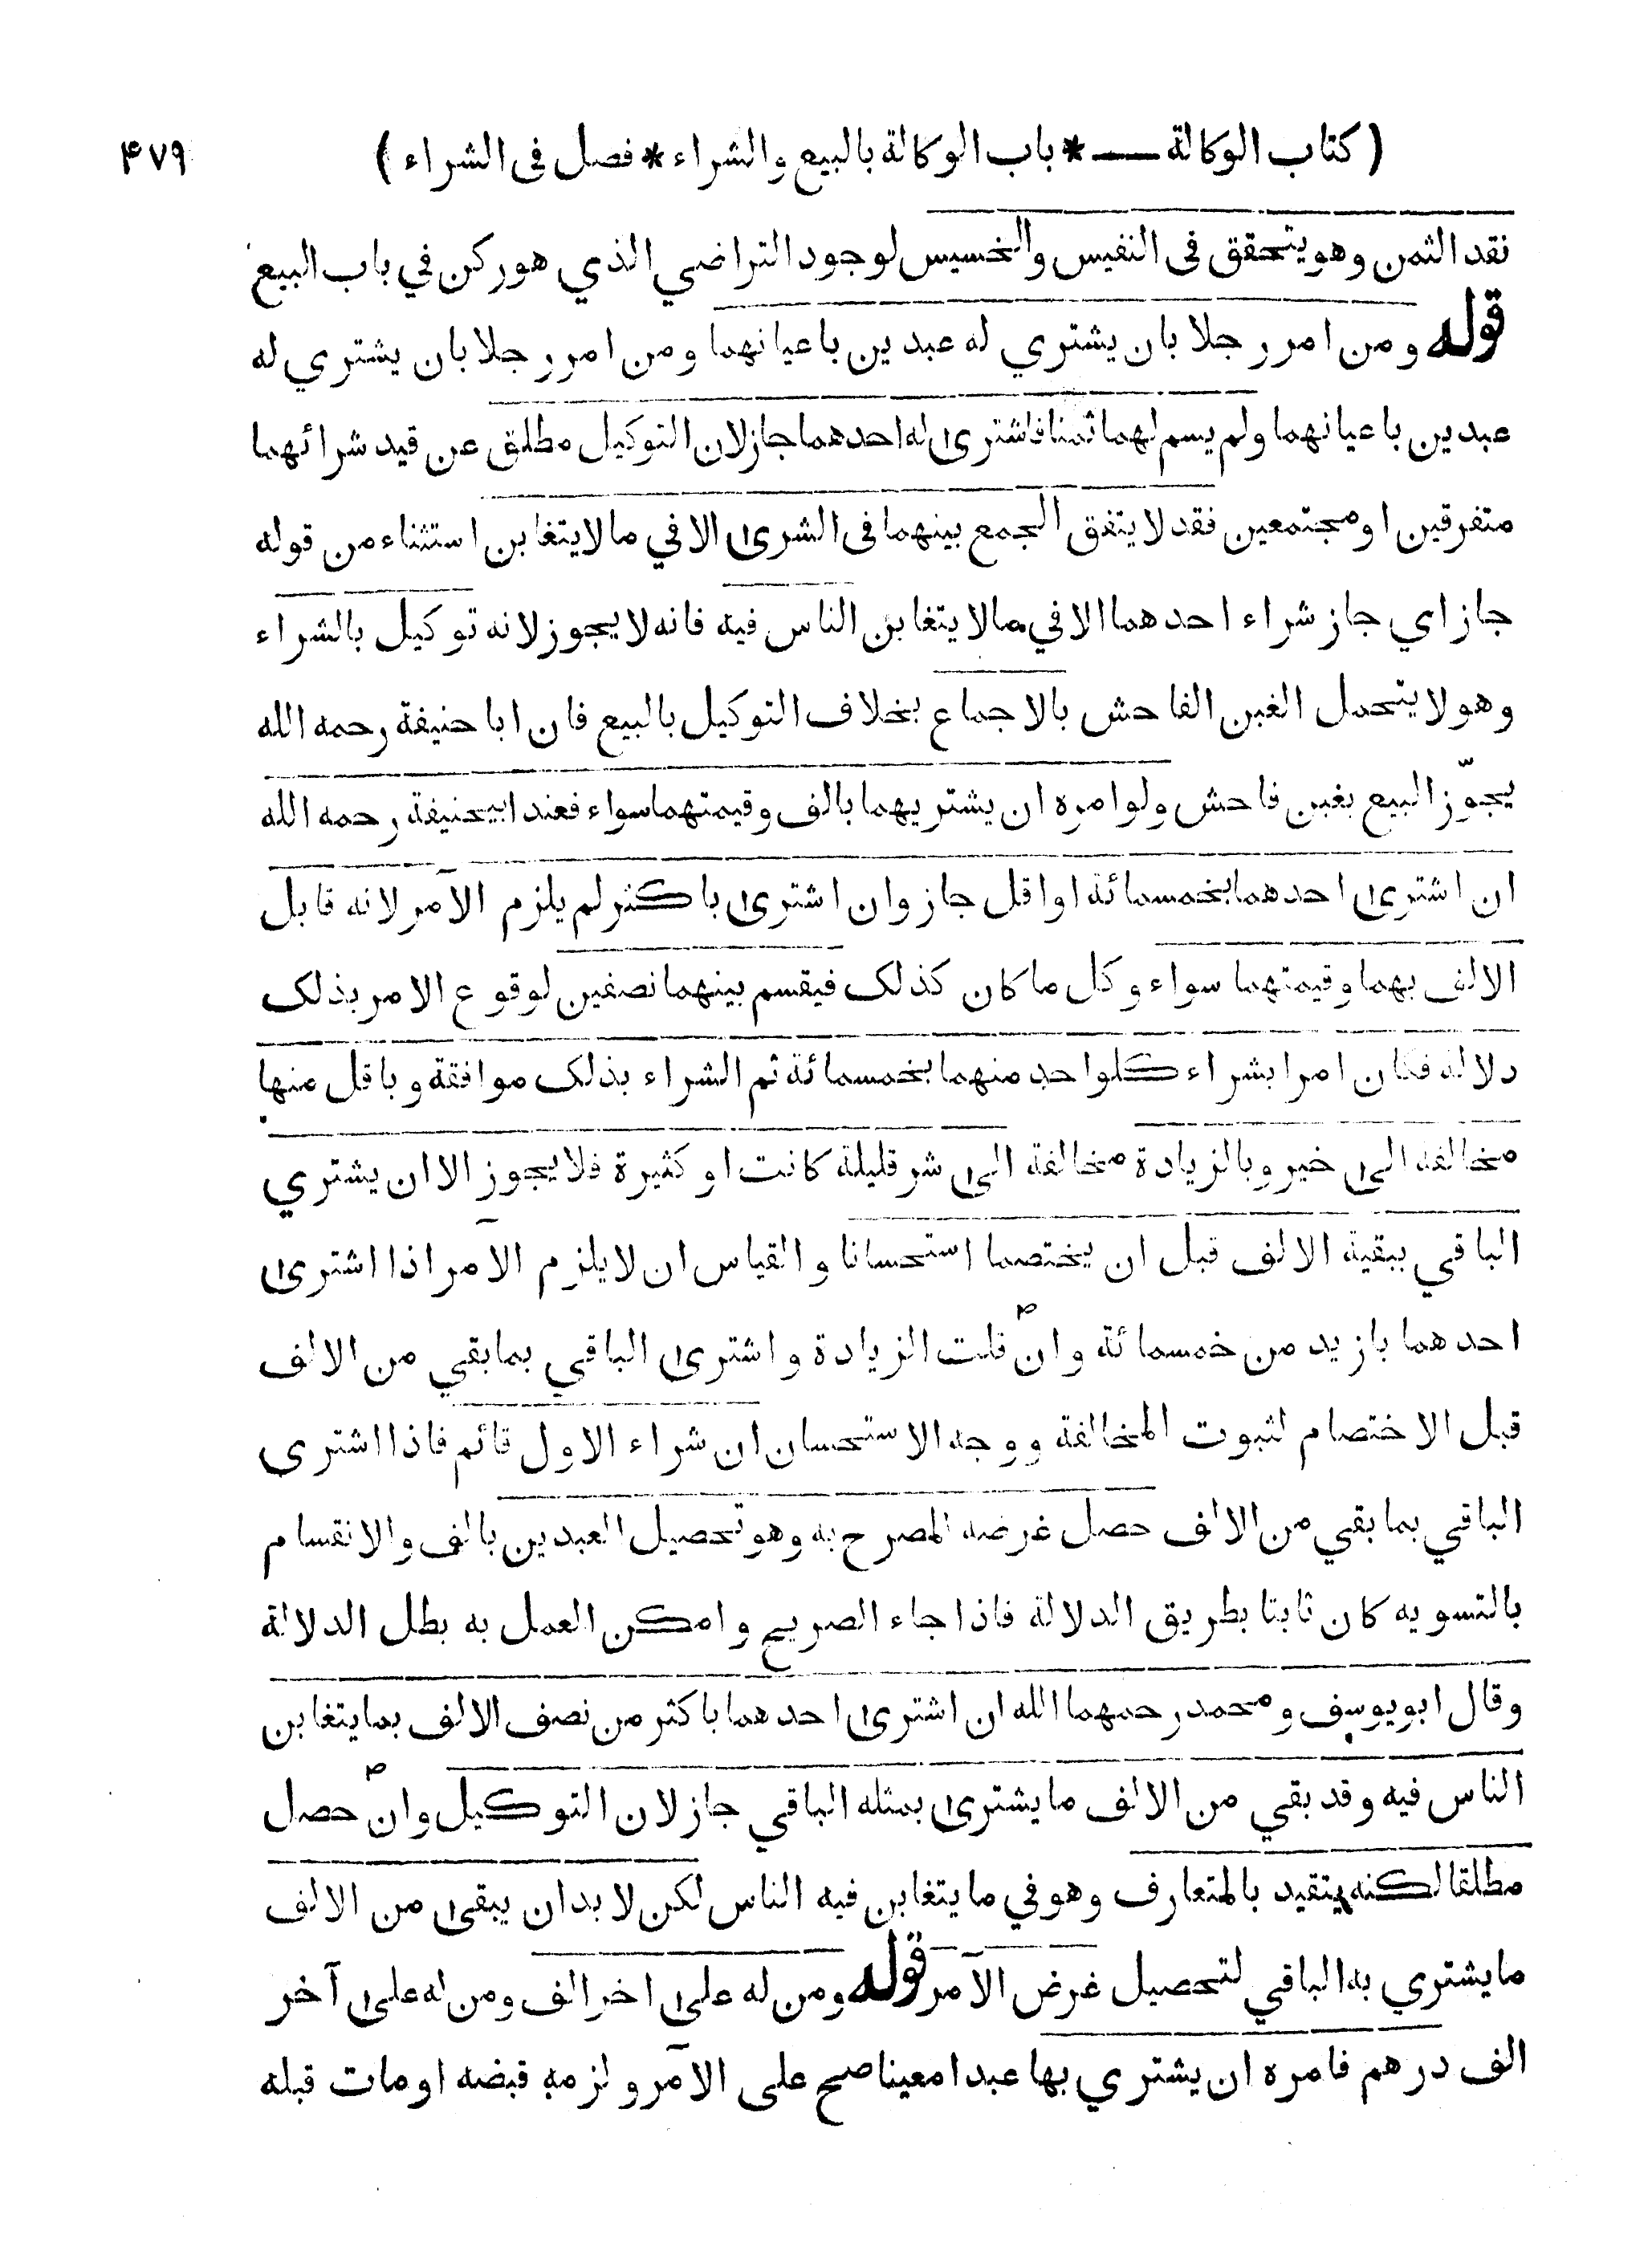 ( كتاب الوكالة — * باب الوكالة بالبيع والشراء * فصل فى الشراء ) ۴۷۹
نقد الثمن وهو يتحقق فى النفيس والخسيس لوجود التراضي الذي هو ركن في باب البيع
قوله ومن امر رجلا بان يشتري له عبدين باعيانهما ومن امر رجلا بان يشتري له
عبدين باعيانهما ولم يسم لهما ثمنا فاشترىٰ له احدهما جاز لان التوكيل مطلق عن قيد شرائهما
متفرقين او مجتمعين فقد لا يتفق الجمع بينهما فى الشرىٰ الا في ما لا يتغابن استثناء من قوله
جاز اي جاز شراء احدهما الا في ما لا يتغابن الناس فيه فانه لا يجوز لانه توكيل بالشراء
وهو لا يتحمل الغبن الفاحش بالاجماع بخلاف التوكيل بالبيع فان ابا حنيفة رحمه الله
يجوّز البيع بغبن فاحش ولو امره ان يشتريهما بالف وقيمتهما سواء فعند ابيحنيفة رحمه الله
ان اشترىٰ احدهما بخمسمائة او اقل جاز وان اشترىٰ باكثر لم يلزم الآمر لانه قابل
الالف بهما وقيمتهما سواء وكل ما كان كذلك فيقسم بينهما نصفين لوقوع الامر بذلك
دلالة فكان امرا بشراء كلواحد منهما بخمسمائة ثم الشراء بذلك موافقة وباقل منها
مخالفة الىٰ خير وبالزيادة مخالفة الىٰ شر قليلة كانت او كثيرة فلا يجوز الا ان يشتري
الباقي ببقية الالف قبل ان يختصما استحسانا والقياس ان لا يلزم الآمر اذا اشترىٰ
احدهما بازيد من خمسمائة وان قلت الزيادة واشترىٰ الباقي بما بقي من الالف
قبل الاختصام لثبوت المخالفة ووجه الاستحسان ان شراء الاول قائم فاذا اشترى
الباقي بما بقي من الالف حصل غرضه المصرح به وهو تحصيل العبدين بالف والانقسام
بالتسويه كان ثابتا بطريق الدلالة فاذا جاء الصريح وامكن العمل به بطل الدلالة
وقال ابو يوسف ومحمد رحمهما الله ان اشترىٰ احدهما باكثر من نصف الالف بما يتغابن
الناس فيه وقد بقي من الالف ما يشترىٰ بمثله الباقي جاز لان التوكيل وان حصل
مطلقا لكنه يتقيد بالمتعارف وهو في ما يتغابن فيه الناس لكن لا بد ان يبقىٰ من الالف
ما يشتري به الباقي لتحصيل غرض الآمر قوله ومن له علىٰ اخر الف ومن له علىٰ آخر
الف درهم فامره ان يشتري بها عبدا معينا صح على الآمر ولزمه قبضه او مات قبله